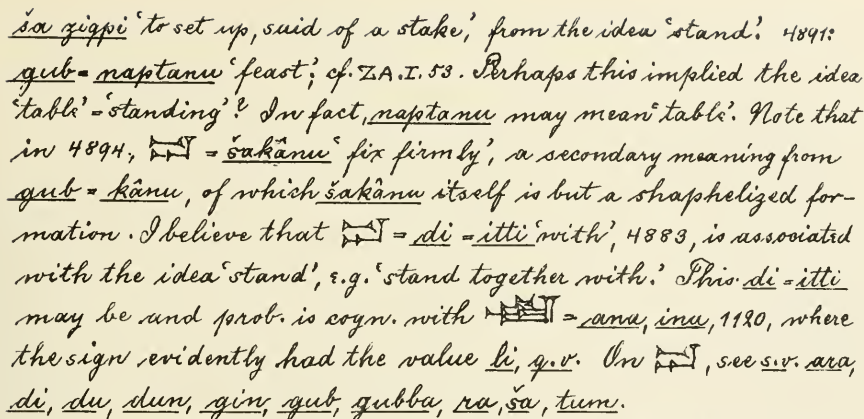 ša ziqpi ‘to set up, said of a stake,’ from the idea ‘stand’. 4891:
gub = naptanu ‘feast’; cf. ZA. I. 53. Perhaps this implied the idea
‘table’ = ‘standing’? In fact, naptanu may mean ‘table’. Note that
in 4894, 𒁺 = šakânu ‘fix firmly’, a secondary meaning from
gub = kânu, of which šakânu itself is but a shaphelized for-
mation. I believe that 𒁺 = di = itti ‘with’, 4883, is associated
with the idea ‘stand’, e.g. ‘stand together with.’ This di = itti
may be and prob. is cogn. with = ana, ina, 1120, where
the sign evidently had the value li, q.v. On 𒁺, see s.v. ara,
di, du, dun, gin, gub, gubba, ra, ša, tum.